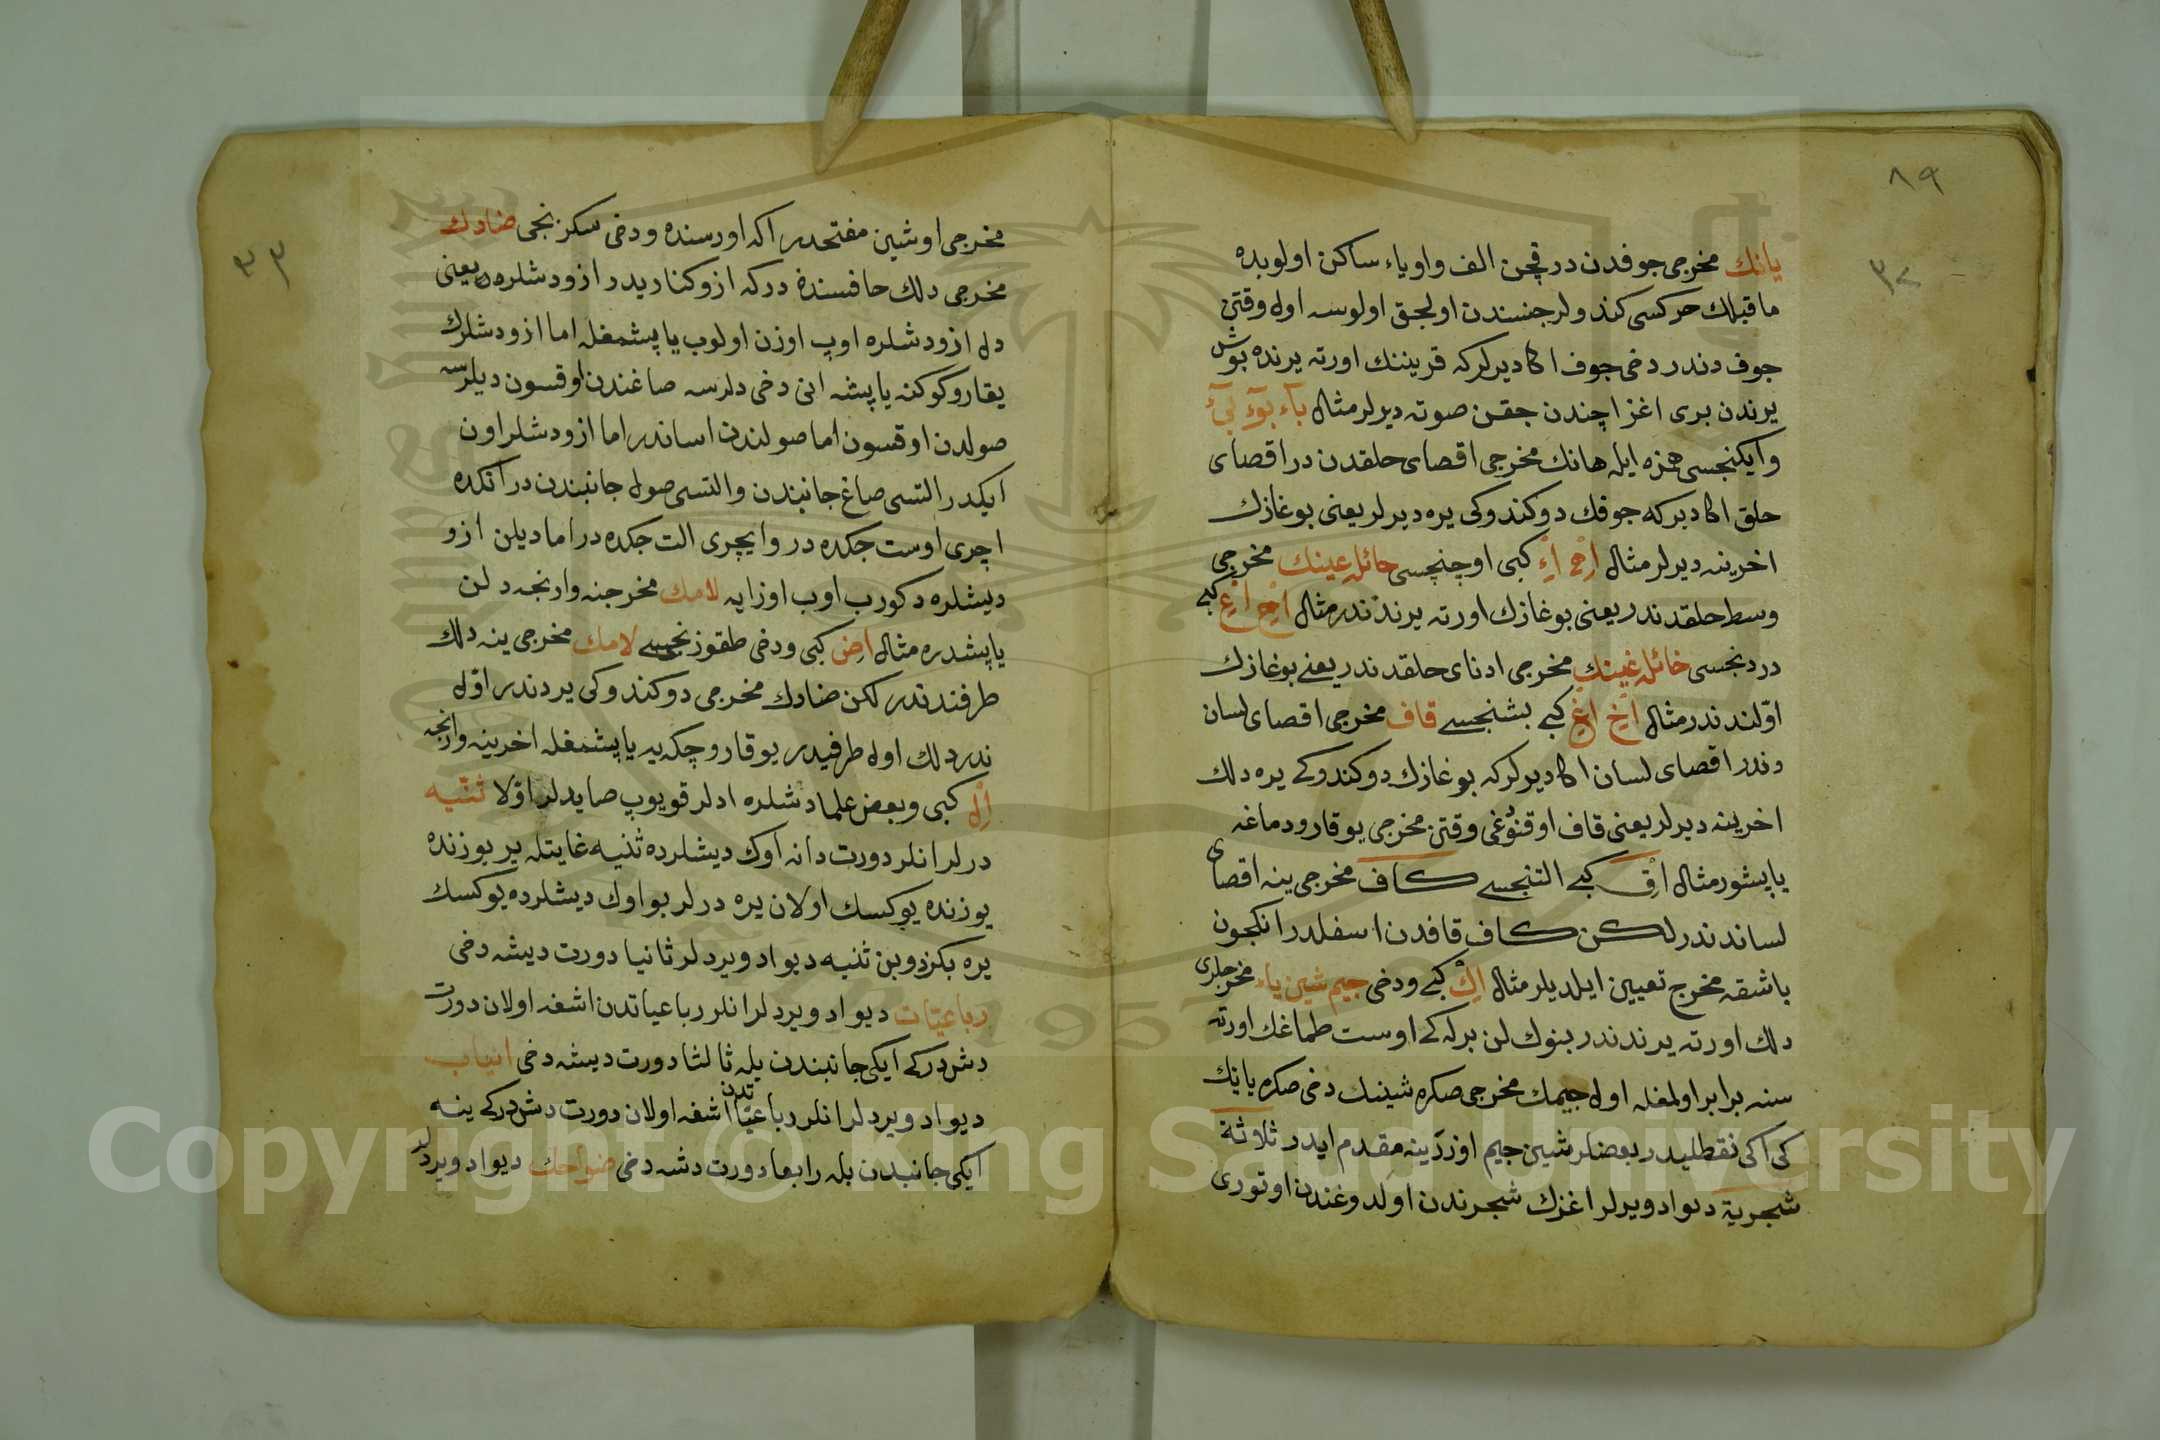 ٨٩
٣٢
يانك مخرجى جوفدن در قچن الف واو ياء ساكن اولوبده
ما قبلك حركسى كندولر جنسندن اولجق اولوسه اول وقتن
جوف دندر دخى جوف اكا ديرلركه قريننك اورته يرنده بوش
يرندن برى اغز اچندن جقن صوته ديرلر مثال باء بوء بىء
وايكنجسى همزه ايله هانك مخرجى اقصاى حلقدن در اقصاى
حلق اكا ديركه جوفك دوكندوكى يره ديرلر يعنى بوغازك
اخرينه ديرلر مثال اه اء كبى اوچنچسى حائله عينك مخرجى
وسط حلقدندر يعنى بوغازك اورته يرندندر مثال اح اع كبى
دردنجسى خائله غينك مخرجى ادناى حلقدندر يعنى بوغازك
اوّلندندر مثال اخ اغ كبى بشنجسى قاف مخرجى اقصاى لسان
دندر اقصاى لسان اكا ديرلركه بوغازك دوكندوكى يره دلك
اخرينه ديرلر يعنى قاف اوقنوغى وقتن مخرجى يوقارو دماغه
ياپشور مثال اق كبى التنجسى كاف مخرجى ينه اقصاى
لساندندر لكن كاف قافدن اسفلدر انكچون
باشقه مخرج تعيين ايلديلر مثال اك كبى ودخى جيم شين ياء مخرجلرى
دلك اورته يرندندر بنوك لن برله كى اوست طماغك اورته
سنه برابر اولمغله اول جيمك مخرجى صكره شينك دخى صكره يانك
كى اكى نقطليدر بعضلر شين جيم اوزرينه مقدم ايدر ثلاثة
شجرية ديواد ويرلر اغزك شجرندن اولدوغندن اوتورى
٣٣
مخرجى اوشين مفتحدر اكه اورسنده ودخى سكزنجى ضادك
مخرجى دلك حافسنده دركه ازو كناريدر ازودشلره يعنى
دل ازودشلره اوب اوزن اولوب ياپشمغله اما ازودشلرك
يقارو كوكنه ياپشه انى دخى دلرسه صاغندن اوقسون ديلرسه
صولدن اوقسون اما صولندن اساندر اما ازودشلر اون
ايكدر التسى صاغ جانبندن والتسى صول جانبندن در انكده
اچرى اوست جكده در وايچرى الت جكده در اما ديلن ازو
ديشلره دكورب اوب اوزايه لامك مخرجنه وارنجه دلن
ياپشدره مثال اض كبى ودخى طقوزنجسى لامك مخرجى ينه دلك
طرفندندر لكن ضادك مخرجى دوكندوكى يردندر اوّل
ندر دلك اول طرفيدر يوقارو چكه يه ياپشمغله اخرينه وارنجه
ال كبى وبعض علما دشلره ادلر قويوب صايدلر اوّلا ثنيه
درلر انلر دورت دانه اوك ديشلرده ثنيه غايتله ير يوزنده
يوزنده يوكسك اولان يره درلر بو اوك ديشلرده يوكسك
يره بكزدوبن ثنيه ديواد ويردلر ثانيا دورت ديشه دخى
رباعيات ديواد ويردلر انلر رباعياتدن اشغه اولان دورت
دش دركى ايكى جانبندن يله ثالثا دورت ديشه دخى انياب
ديواد ويردلر انلر رباعياتدن اشغه اولان دورت دش دركى ينه
ايكى جانبدن بله رابعا دورت دشه دخى ضواحك ديواد ويردلر
Copyright © King Saud University
1957